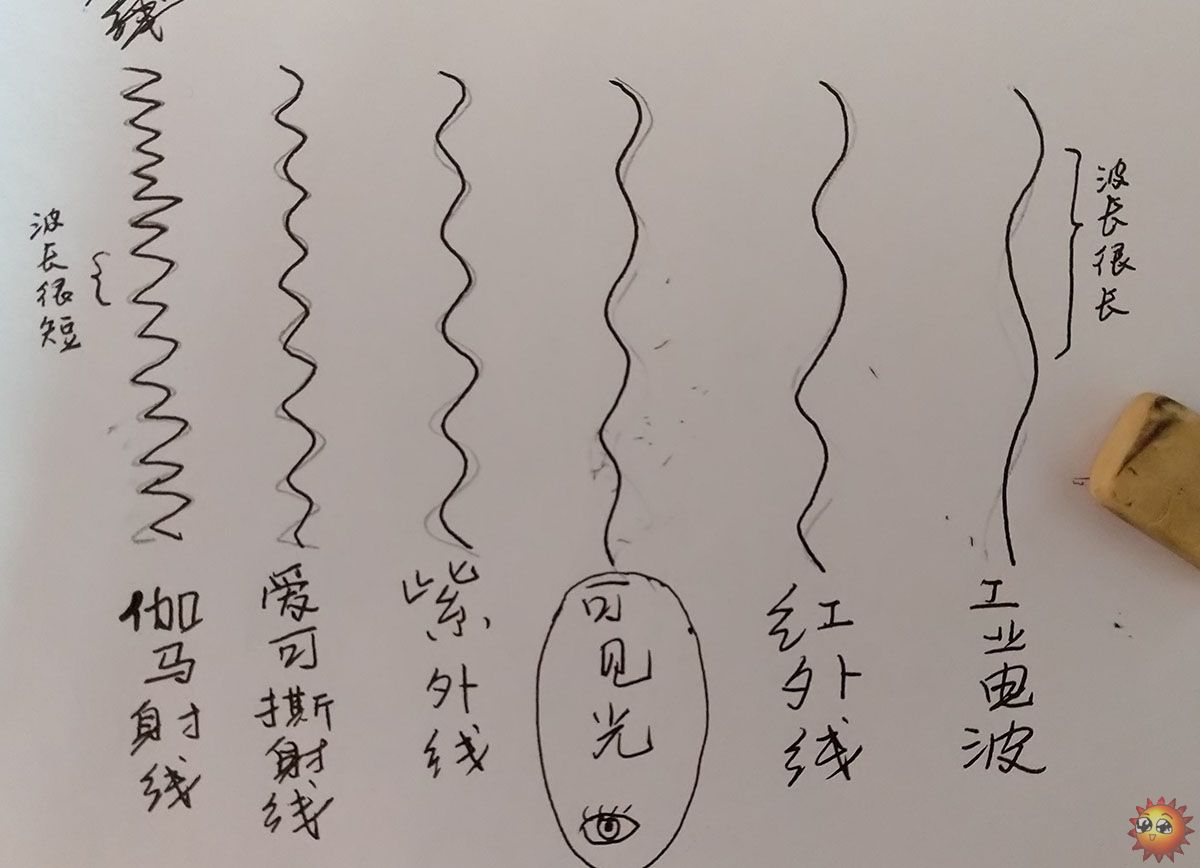 线
波长很短
波长很长
伽马射线
爱可撕射线
紫外线
可见光
红外线
工业电波